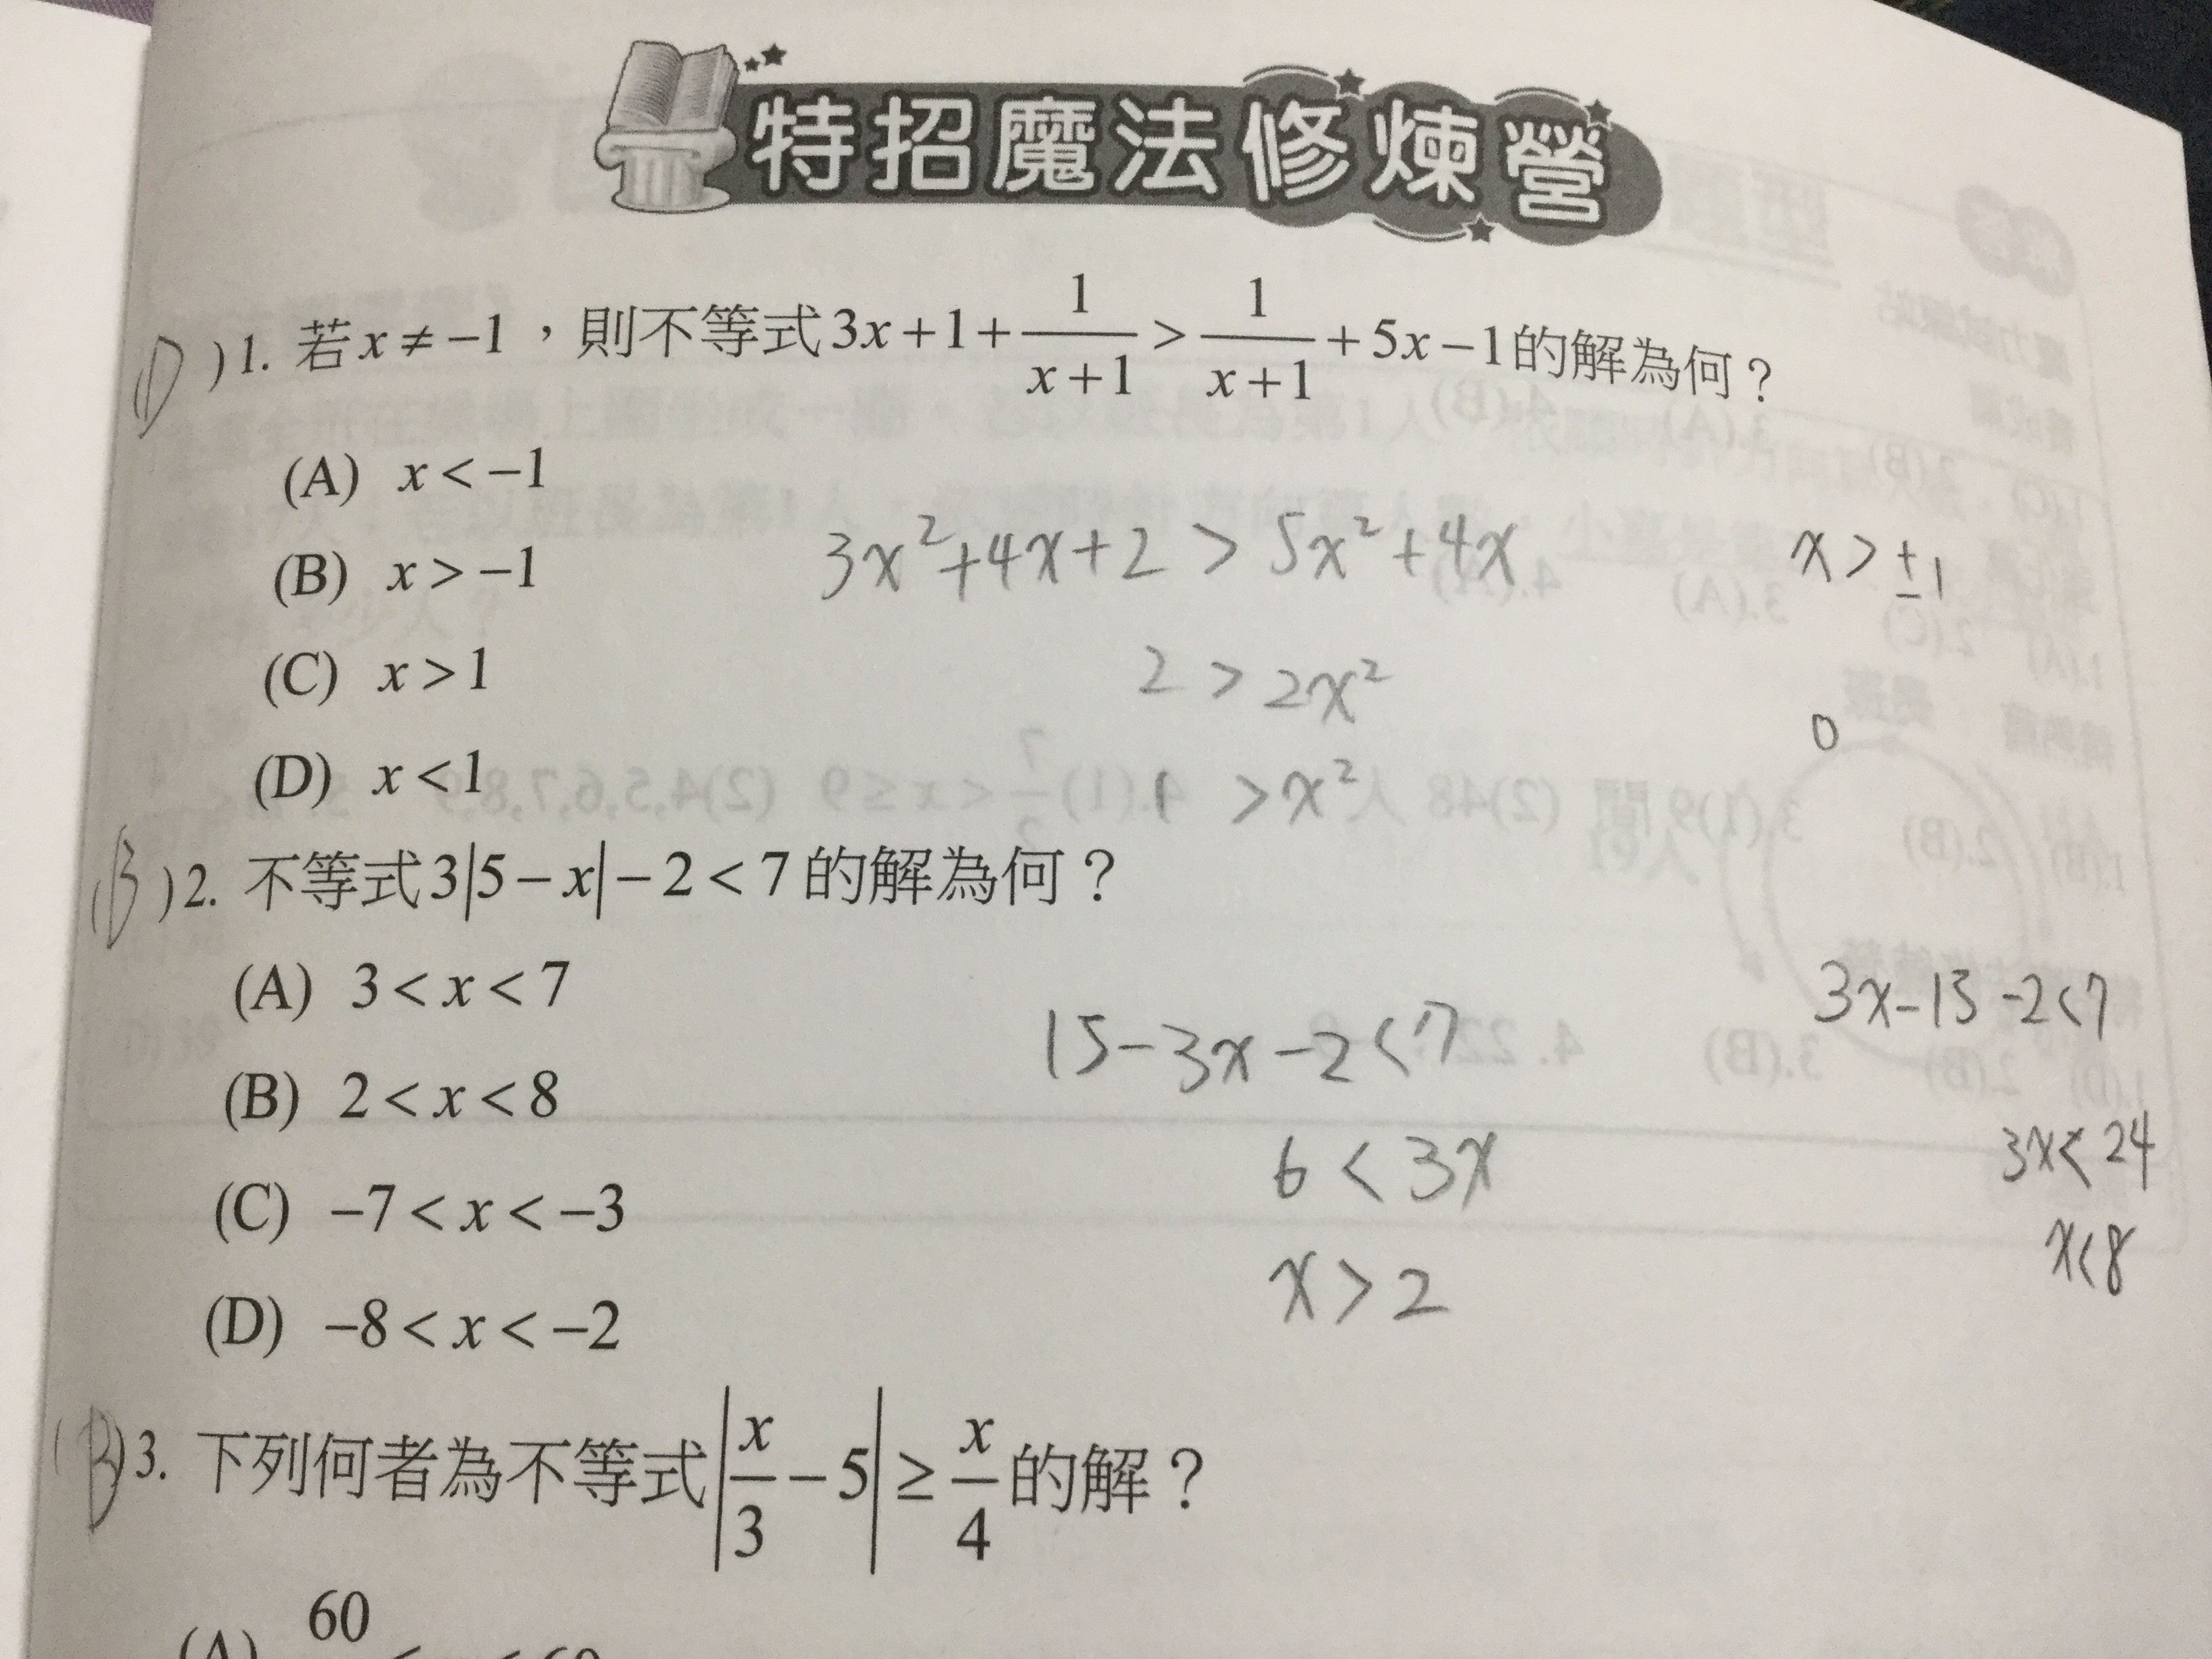 特招魔法修煉營
(D)1. 若x≠−1，則不等式3x+1+\frac{1}{x+1}>\frac{1}{x+1}+5x−1的解為何？
(A) x<−1
(B) x>−1
3x²+4x+2 > 5x²+4x
x>±1
(C) x>1
2 > 2x²
0
(D) x<1
1 >x²
(B)2. 不等式3|5−x|−2<7的解為何？
(A) 3<x<7
15−3x−2<7
3x−15−2<7
(B) 2<x<8
6<3x
3x<24
(C) −7<x<−3
x>2
x<8
(D) −8<x<−2
(B)3. 下列何者為不等式|\frac{x}{3}−5|≥\frac{x}{4}的解？
(A) 60